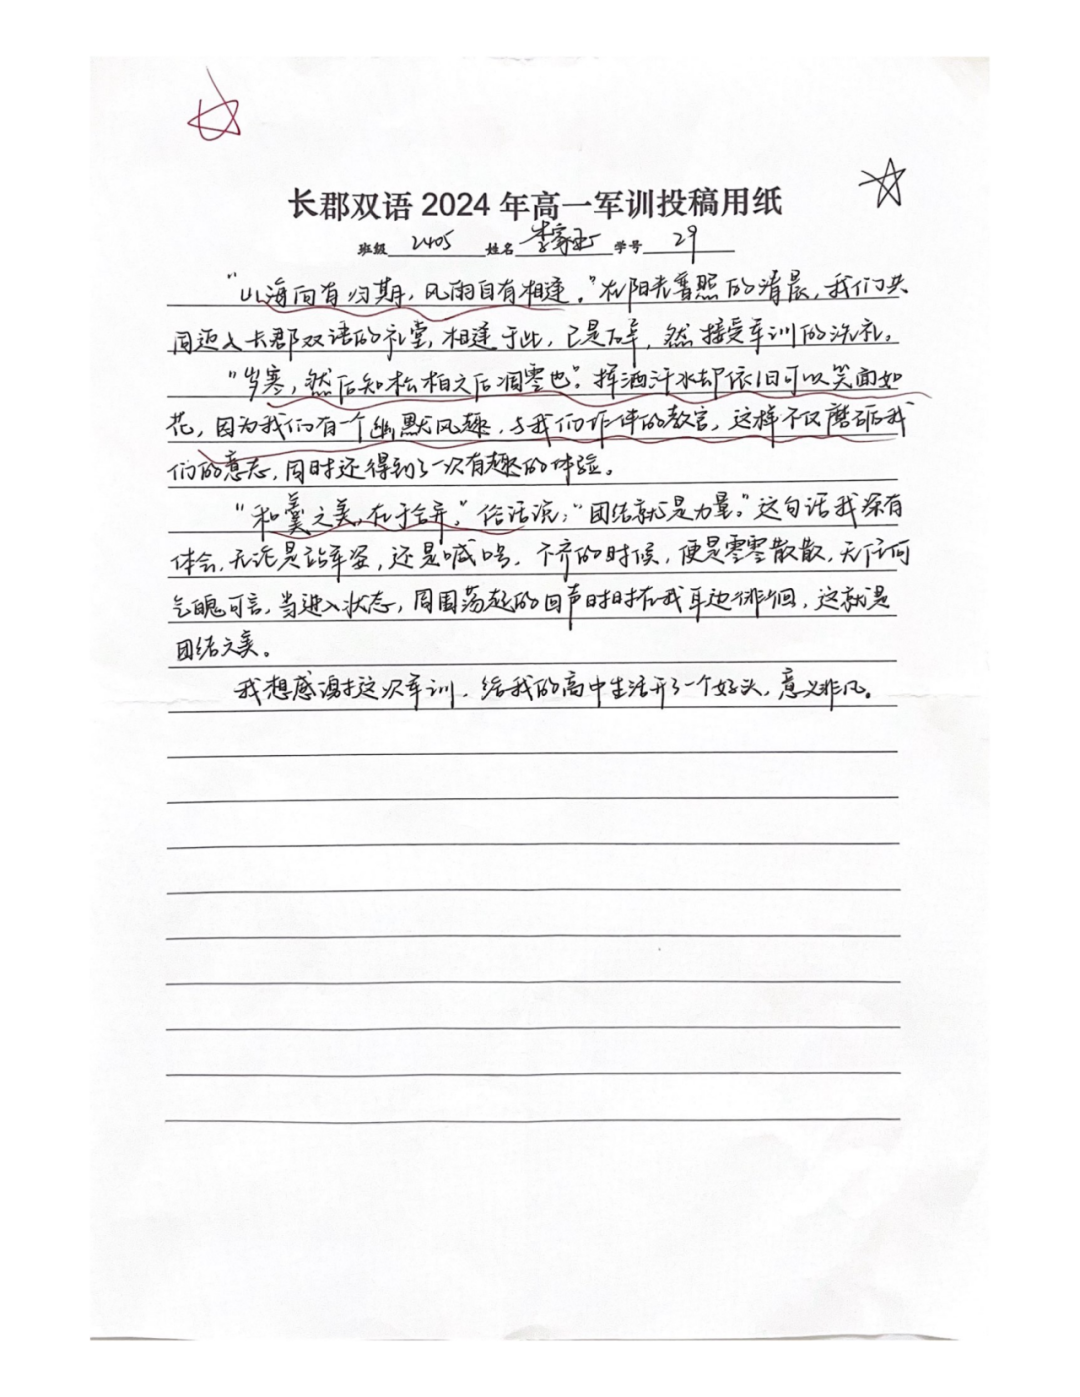 长郡双语 2024 年高一军训投稿用纸
班级 2405 姓名 李 学号 29
“山海自有归期，风雨自有相逢。”在阳光普照的清晨，我们共
同迈入长郡双语的礼堂，相逢于此，已是万幸，然接受军训的洗礼。
“岁寒，然后知松柏之后凋零也”。挥洒汗水却依旧可以笑面如
花，因为我们有一个幽默风趣，与我们作伴的教官，这样不仅磨砺我
们的意志，同时还得到了一次有趣的体验。
“和羹之美，在于合异。”俗话说，“团结就是力量。”这句话我深有
体会，无论是站军姿，还是喊口号，不齐的时候，便是零零散散，无任何
气魄可言，当进入状态，周围荡起的回声时时在我耳边徘徊，这就是
团结之美。
我想感谢这次军训，给我的高中生活开了一个好头，意义非凡。